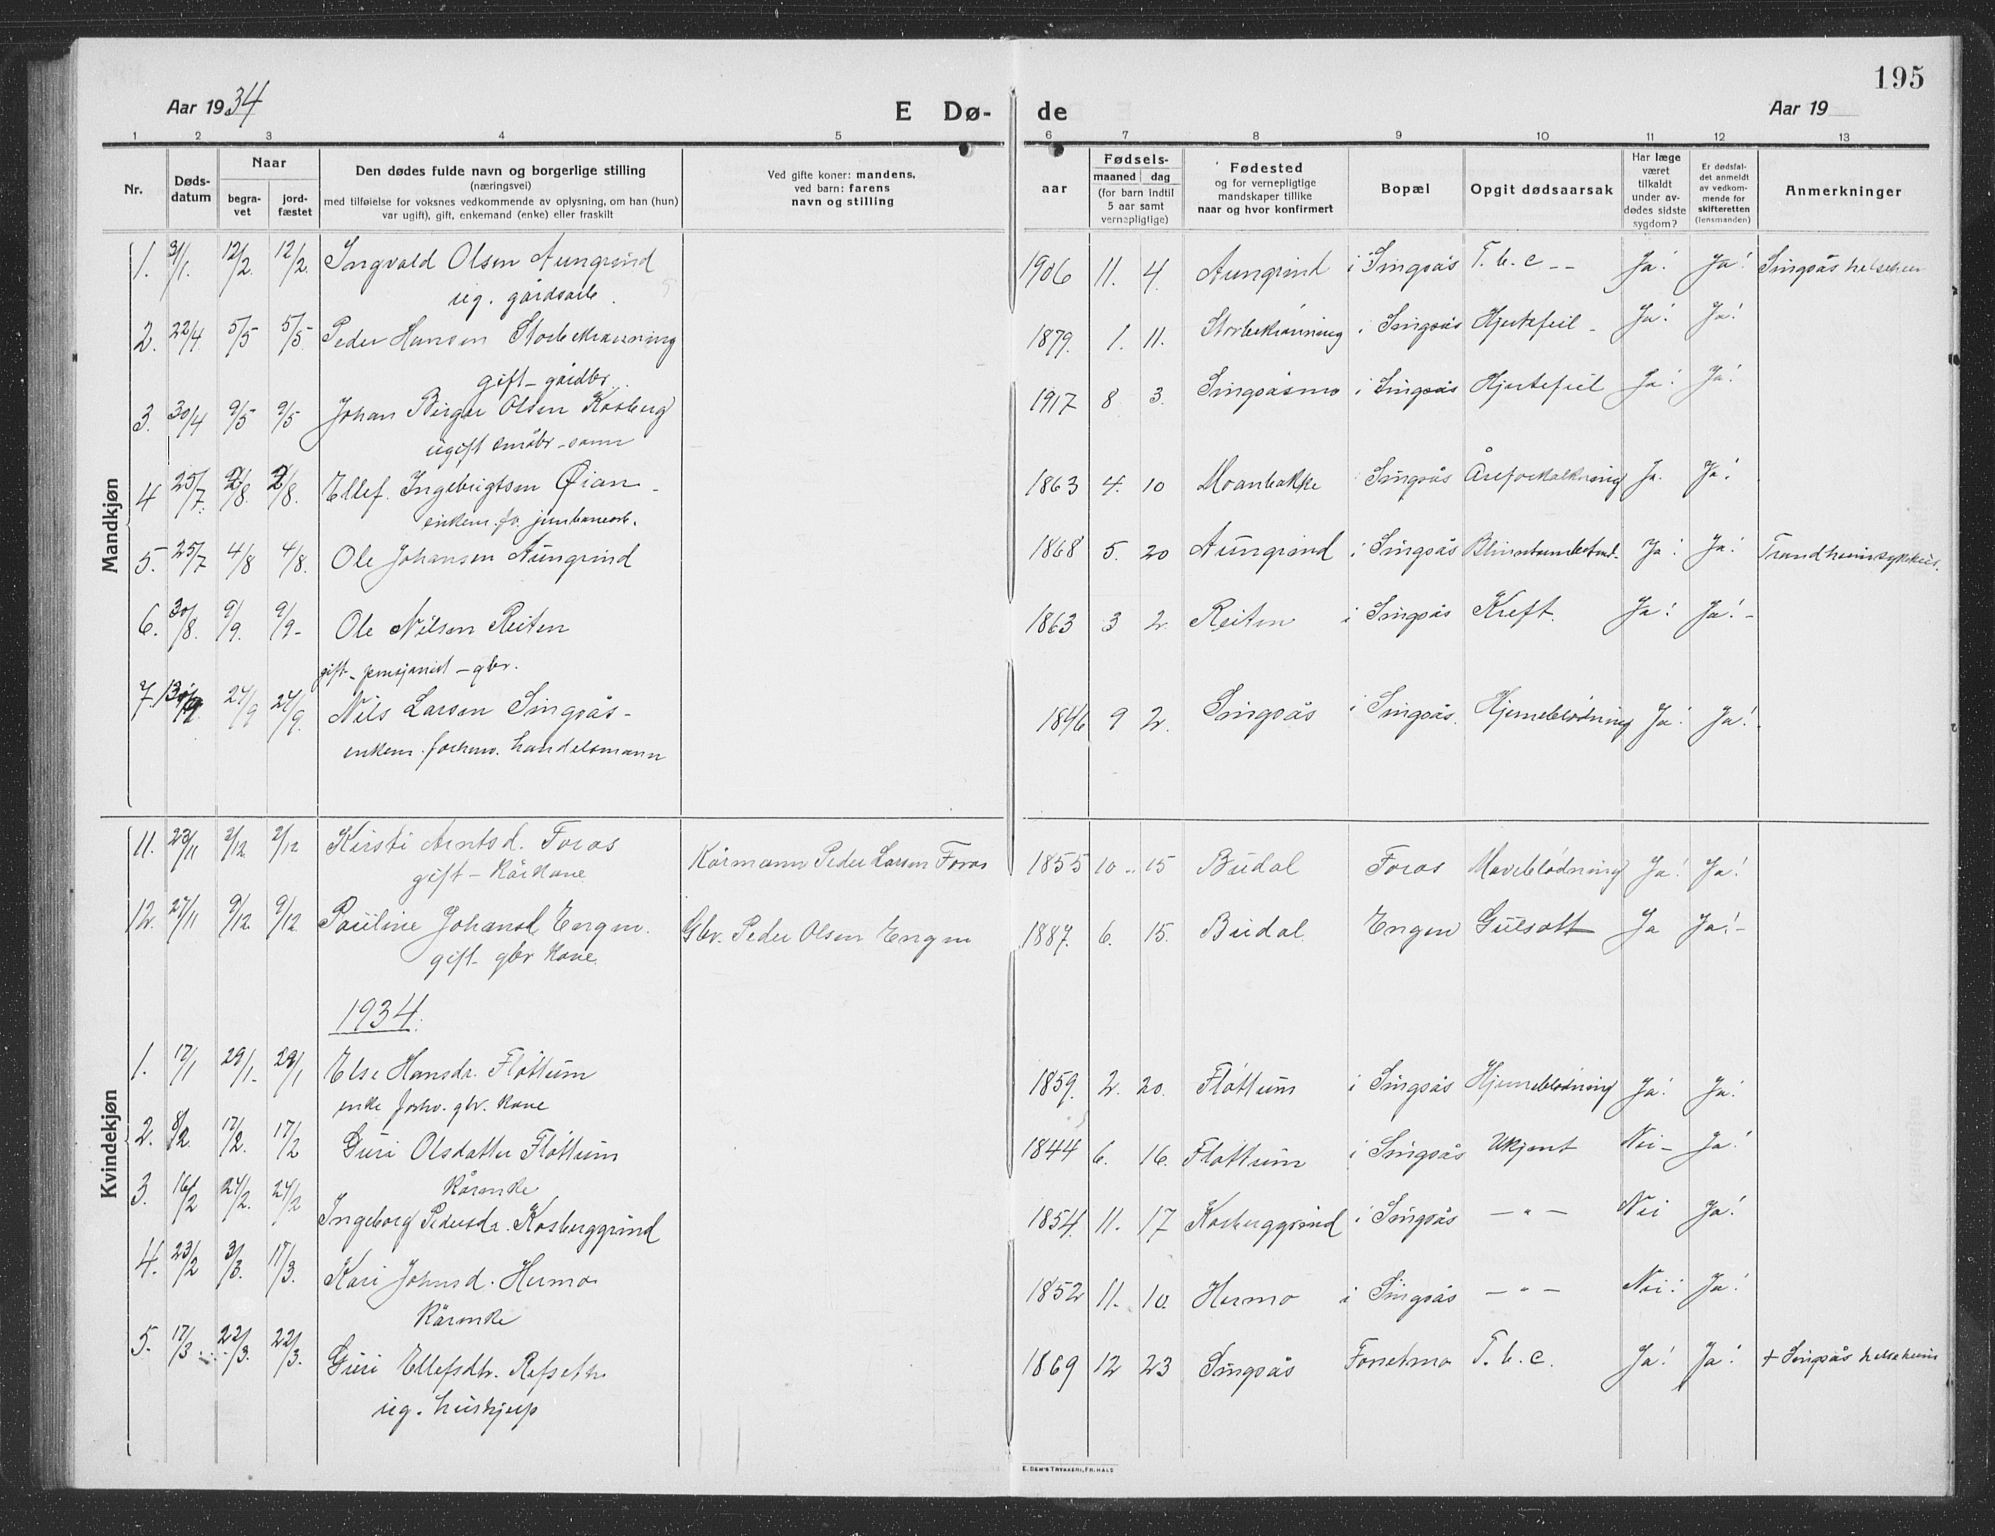 195
Aar 1934
E Dø-
de
Aar 19
1 2 3 4 5 6 7 8 9 10 11 12 13
Nr.
Dødsdatum
Naar
begravet
jordfæstet
Den dødes fulde navn og borgerlige stilling
(næringsvei)
med tilføielse for voksnes vedkommende av oplysning, om han (hun)
var ugift), gift, enkemand (enke) eller fraskilt
Ved gifte koner: mandens,
ved barn: farens
navn og stilling
aar
Fødsels-
maaned dag
(for barn indtil
5 aar samt
vernepligtige)
Fødested
og for vernepligtige
mandskaper tillike
naar og hvor konfirmert
Bopæl
Opgit dødsaarsak
Har læge
været
tilkaldt
under av-
dødes sidste
sygdom?
Er dødsfal-
det anmeldt
av vedkom-
mende for
skifteretten
(lensmanden)
Anmerkninger
Mandkjøn
1. 31/1. 12/2. 12/2. Ingvald Olsen Aungrind 1906 11. 4. Aungrind i Singsås T.b.c -- Ja! Ja! Singsås
ug. gårdsarb.
2. 22/4 5/5 5/5. Peder Hansen Storbekrønning 1879. 1. 11. Storbekrønning i Singsås Hjertefeil - Ja! Ja!
gift - gårdbr.
3. 30/4 9/5 9/5 Johan Birger Olsen Kosberg 1917 8 3. Singsåsmo i Singsås Hjertefeil Ja! Ja!
ugift småbr - sønn
4 25/7. 2/8. 2/8. Ellef Ingebrigtsen Øian - 1863 4. 10 Moanbakke Singsås Åreforkalkning Ja. Ja!
enkem. fv. jernbanearb.
5. 25/7 4/8 4/8. Ole Johansen Aungrind 1868 5. 20 Aungrind i Singsås Ja! Ja!
6. 30/8. 9/9. 9/9- Ole Nilsen Reiten 1863 3 2 Reiten i Singsås Kreft. Ja! Ja! -
gift - pensjonist - gbr.
7. 24/9 24/9. Nils Larsen Singsås - 1846 9 2. Singsås i Singsås. Hjerneblødning Ja! Ja!
enkem. forhenv. handelsmann
Kvindekjøn
11. 23/11 2/12. 2/12 Kirsti Arntsd. Foros Kårmann Peder Larsen Foros 1855 10 15 Budal Foros Maveblødning Ja! Ja!
gift - kårkone
12. 27/11 9/12. 9/12. Pauline Johansd. Engen. Gbr. Peder Olsen Engen 1887. 6. 15. Budal. Engen Gulsott Ja Ja! -
gift - gbr kone.
1934.
1. 17/1 29/1- 29/1 Else Hansdr. Fløttum 1859. 2. 20. Fløttum i Singsås Hjerneblødning Ja! Ja!
enke forhv. gbr. kone
2. 8/2. 17/2. 17/2 Guri Olsdatter Fløttum 1844 6. 16. Fløttum i Singsås Ukjent Nei - Ja!
kårenke
3. 16/2 24/2. 24/2 Ingeborg Pedersdr. Kosberggrind 1854. 11. 17 Kosberggrind i Singsås — " — Nei Ja!
4. 23/2 3/3. 17/3. Kari Johnsd. Hermo 1852 11. 10. Hermo i Singsås — " — Nei! Ja!
kårenke
5. 17/3 22/3. 22/3. Guri Ellefsdtr. Refseth 1869 12 23 Singsås Forsetmo T.b.c. Ja! Ja! + Singsås helseheim
ug. hushjelp
E. DEM'S TRYKKERI, FR.HALD